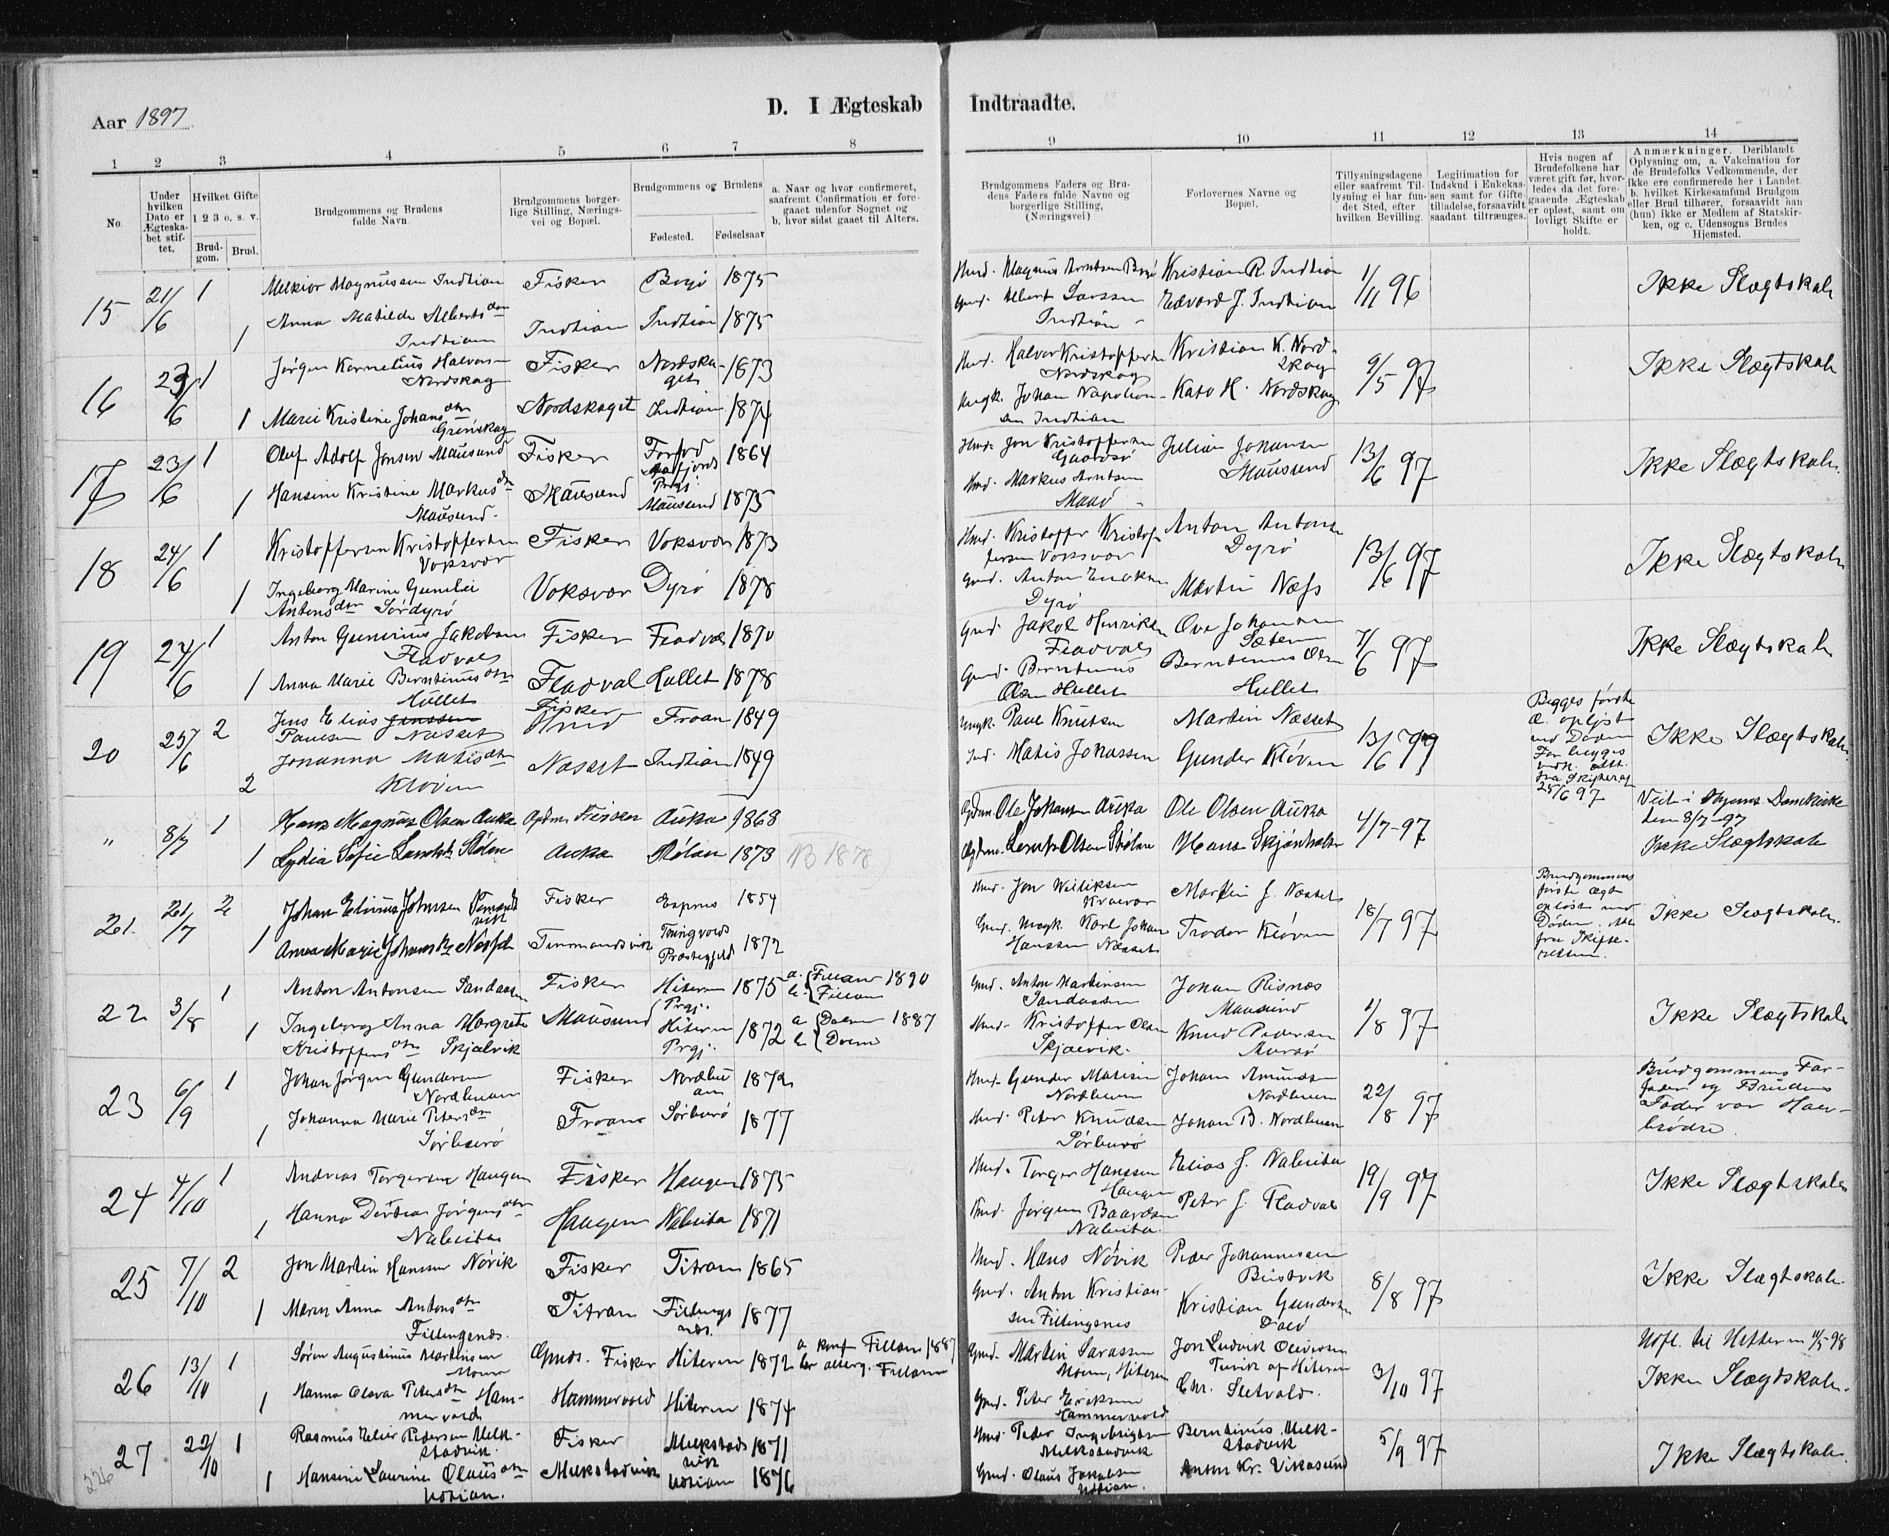 Aar 1897.
D. I Ægteskab Indtraadte.
1 2 3 4 5 6 7 8 9 10 11 12 13 14
No.
Under hvilken Dato er Ægteskabet stiftet.
Hvilket Gifte 1 2 3 o. s. v.
Brudgom. Brud.
Brudgommens og Brudens fulde Navn
Brudgommens borgerlige Stilling, Næringsvei og Bopæl.
Brudgommens og Brudens
Fødested. Fødselsaar
a. Naar og hvor confirmeret, saafremt Confirmation er foregaaet udenfor Sognet og b. hvor sidst gaaet til Alters.
Brudgommens Faders og Brudens Faders fulde Navne og borgerlige Stilling, (Næringsvei)
Forlovernes Navne og Bopæl.
Tillysningsdagene eller saafremt Tillysning ei har fundet Sted, efter hvilken Bevilling.
Legitimation for Indskud i Enkekassen samt for Giftetilladelse, forsaavidt saadant tiltrænges.
Hvis nogen af Brudefolkene har været gift før, hvorledes da det foregaaende Ægteskab er opløst, samt om lovligt Skifte er holdt.
Anmærkninger. Deriblandt Oplysning om, a. Vakcination for de Brudefolks Vedkommende, der ikke ere confirmerede her i Landet. b. hvilket Kirkesamfund Brudgom eller Brud tilhører, forsaavidt han (hun) ikke er Medlem af Statskirken, og c. Udensogns Brudes Hjemsted.
15 21/6 1 Melkior Magnussen Indtian Fisker Bogø 1875 Magnus Arntsen Bogø Kristian R. Indtian 1/11 96 Ikke Slægtskab
1 Anna Matilde Alberts dtr Indtian Indtian Indtian 1875 Albert Larssen Indtian Edvard J. Indtian
16 23/6 1 Jørgen Kornelius Halvorsen Nordskag Fisker Nordskaget 1873 Halvor Kristoffersen Nordskag Kristian K. Nordskag 9/5 97 Ikke Slægtskab
1 Marie Kristine Johans dtr Grønskag Nordskaget Indtian 1874 Johan Napoleonsen Indtian Kato H. Nordskag
17 23/6 1 Oluf Adolf Jonsen Mausund Fisker 1864 Jon Kristoffersen Gaardsø Julian Johansen Mausund 13/6 97 Ikke Slægtskab.
1 Hansine Kristine Markus dtr Mausund. Mausund Mausund 1875 Markus Arntsen
18 24/6 1 Kristoffersen Kristoffersen Voksvor Fisker Voksvor 1873 Kristoffer Kristoffersen Voksvor Anton Antons Dyrø 13/6 97 Ikke Slægtskab
1 Ingeborg Marine Antons dtr Sørdyrø Voksvor Dyrø 1878 Anton Dyrø Martin Næss
19 24/6 1 Anton Gunerius Jakobsen Fladval Fisker Fladval 1870 Jakob Henriksen Fladval Ove Johansen 7/6 97 Ikke Slægtskab
1 Anna Marie Berntinus dtr Hullet Fladval Hullet 1878 Berntinus Olsen Hullet Berntinus Olsen Hullet
20 25/6 2 Jens Elias Jenssen Paulsen Næsset Fisker Froan 1849 Paul Knutsen Martin Næsset 13/6 Begges første Æ. opløst ved Døden 25/6 97 Ikke Slægtskab.
2 Johanna Matis dtr Kløven Næsset Indtian 1849 Matis Johnssen Gunder Kløven
" 8/7 1 Hans Magnus Olsen Auka Fisker Auka 1868 Ole Johansen Auka Ole Olsen Auka 4/7-97 Viet i Domkirke den 8/7-97
1 Lydia Sofie Auka Stølan 1873 B 1878 Olsen Stølan Hans Skjønhals Ikke Slægtskab
21. 21/7 2 Johan Fisker 1854 Jon Martin J. Næsset 18/7 97 Brudgommens første Ægt. opløst ved Døden Ikke Slægtskab.
1 Anna Marie Tingvold Præstegjeld 1872 Karl Johan Hanssen Næsset Kløven
22 3/8 1 Anton Antonsen Sandassen Fisker Hiteren Prgj. 1875 a. b. Fillan 1890 Fillan Anton Martinsen Sandassen Johan Risnes Mausund 1/8 97 Ikke Slægtskab
1 Ingeborg Anna Margrete Kristoffers dtr Skjælvik Mausund Hiteren Prgj. 1872 a b Dolm 1887 Dolm Kristoffer Olsen Knud Pedersen
23 6/9 1 Johan Jørgen Gundersen Nordbuan Fisker Nordbuan 1872 Gunder Matisen Nordbuan Johan Amundsen Nordbuan 22/8 97 Brudgommens Farfader og Brudens Fader var Halvbrødre.
1 Johanna Marie Peters dtr Sørburø Froan Sørburø 1877 Peter Knudsen Sørburø Johan B. Nordbuan
24 4/10 1 Andreas Torgersen Haugen Fisker Haugen 1875 Torger Hanssen Haugen Elias J. Nabeita 19/9 97 Ikke Slægtskab
1 Hanna Jørgens dtr Nabeita Haugen Nabeita 1871 Jørgen Baardsen Nabeita. Peter J. Fladval
25 7/10 2 Jon Martin Hanssen Nøvik Fisker Titran 1865 Hans Nøvik Peder Johannessen Bustvik 8/8 97 Ikke Slægtskab.
1 Maren Anna Antons dtr Fillingsnæs. Titran Fillingsnæs. 1877 Anton Kristiansen Fillingsnes Kristian Gundersen Dalø
26 13/10 1 Søren Augustinus Martinsen Fisker Hiteren 1872 a konf Fillan 1887 b Fillan Martin Larssen Hiteren Jon Ludvik Oliversen af Hiteren 3/10 97 Ikke Slægtskab.
1 Hanna Olava Peters dtr Hammervold Hammervold Hiteren 1874 Peter Eriksen Hammervold Chr. Sletvold.
27 22/10 1 Rasmus Pedersen Melkstadvik. Fisker Melkstadvik 1871 Peder Ingebrigtsen Melkstadvik Berntinus Melkstadvik 5/9 97 Ikke Slægtskab.
1 Hansine Laurine Olaus dtr Udtian. Melkstadvik Udtian 1876 Olaus Jakobsen Udtian. Anton Kr. Vikasund
326